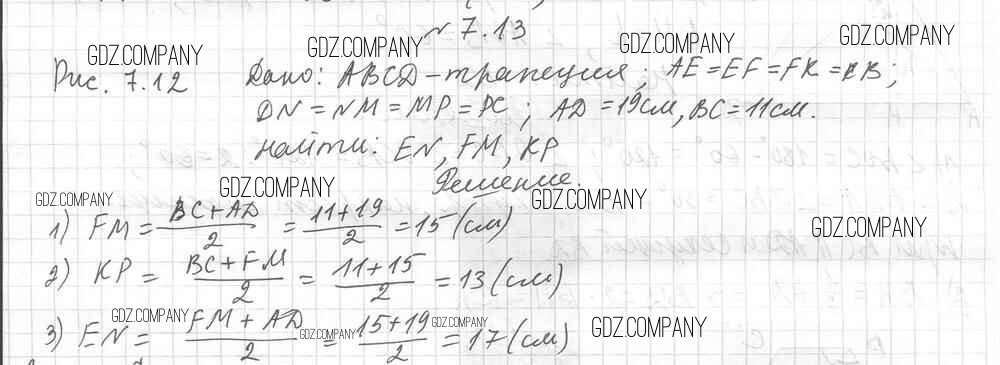 № 7.13
GDZ.COMPANY GDZ.COMPANY GDZ.COMPANY GDZ.COMPANY
Рис. 7.12 Дано: ABCD - трапеция; AE = EF = FK = KB;
DN = NM = MP = PC; AD = 19см, BC = 11см.
Найти: EN, FM, KP
Решение.
GDZ.COMPANY GDZ.COMPANY GDZ.COMPANY GDZ.COMPANY
1) FM = BC + AD / 2 = 11 + 19 / 2 = 15 (см)
2) KP = BC + FM / 2 = 11 + 15 / 2 = 13 (см)
3) EN = FM + AD / 2 = 15 + 19 / 2 = 17 (см)
GDZ.COMPANY GDZ.COMPANY GDZ.COMPANY GDZ.COMPANY